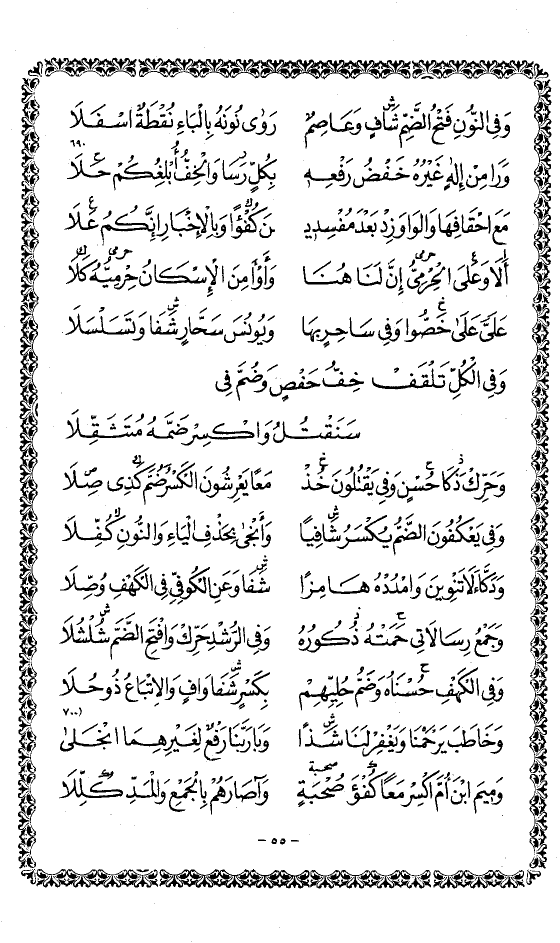 وَفِي النُّونِ فَتْحُ الضَّمِّ شَافٍ وَعَاصِمٌ رَوَى نُونَهُ بِالْبَاءِ نُقْطَةٌ اسْفَلَا
وَرَا مِنْ إِلٰهٍ غَيْرُهُ خَفْضُ رَفْعِهِ بِكُلٍّ رَسَا وَالْخِفُّ أُبْلِغُكُمْ حَلَا ٦٩٠
مَعَ احْقَافِهَا وَالْوَاوَ زِدْ بَعْدَ مُفْسِدِينَ كُفْؤًا وَبِالْإِخْبَارِ إِنَّكُمُ عَلَا
أَلَا وَعَلَى الْحِرْمِيُّ إِنَّ لَنَا هُنَا وَأَوْ أَمِنَ الْإِسْكَانُ حِرْمِيُّهُ كَلَا
عَلَيَّ عَلَى خَصُّوا وَفِي سَاحِرٍ بِهَا وَيُونُسَ سَحَّارٍ شَفَا وَتَسَلْسَلَا
وَفِي الْكُلِّ تَلْقَفْ خِفُّ حَفْصٍ وَضُمَّ فِي
سَنَقْتُلُ وَاكْسِرْ ضَمَّهُ مُتَثَقِّلَا
وَحَرِّكْ ذَكَا حُسْنٍ وَفِي يَقْتُلُونَ خُذْ مَعًا يَعْرِشُونَ الْكَسْرُ ضُمَّ كَذِي صِلَا
وَفِي يَعْكُفُونَ الضَّمُّ يُكْسَرُ شَافِيًا وَأَنْجَى بِحَذْفِ الْيَاءِ وَالنُّونِ كُفِّلَا
وَدَكَّاءَ لَا تَنْوِينَ وَامْدُدْهُ هَامِزًا شَفَا وَعَنِ الْكُوفِيِّ فِي الْكَهْفِ وُصِّلَا
وَجَمْعُ رِسَالَاتِي حَمَتْهُ ذُكُورُهُ وَفِي الرُّشْدِ حَرِّكْ وَافْتَحِ الضَّمَّ شُلْشُلَا
وَفِي الْكَهْفِ حُسْنَاهُ وَضَمُّ حُلِيِّهِمْ بِكَسْرٍ شَفَا وَافٍ وَالْإِتْبَاعُ ذُو حُلَا
وَخَاطَبَ يَرْحَمْنَا وَيَغْفِرْ لَنَا شَذًا وَبَا رَبَّنَا رَفْعٌ لِغَيْرِهِمَا انْجَلَى ٧٠٠
وَمِيمَ ابْنَ أُمَّ اكْسِرْ مَعًا كُفْؤَ صُحْبَةٍ وَآصَارَهُمْ بِالْجَمْعِ وَالْمَدِّ كُلِّلَا
- ٥٥ -